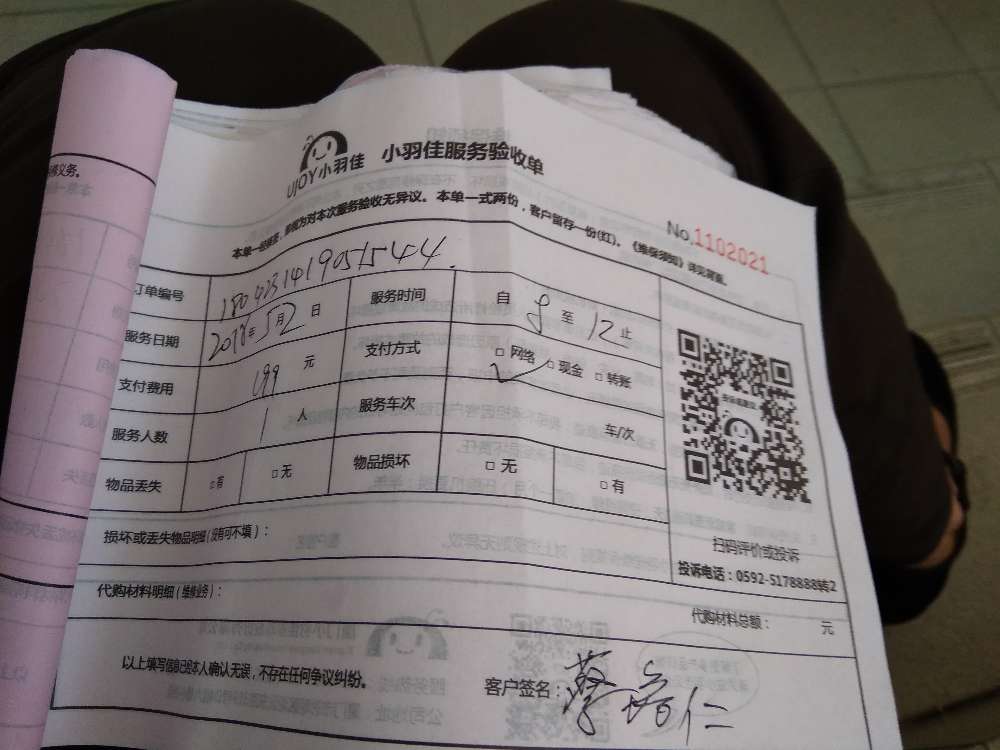 UJOY小羽佳 小羽佳服务验收单
No.1102021
本单一经签署,即视为对本次服务验收无异议。本单一式两份,客户留存一份(红)。《维保须知》详见背面。
订单编号 1804231419051544
服务日期 2018年5月2日 服务时间 自 8 至 12 止
支付费用 199 元 支付方式 □ 网络 □ 现金 □ 转账
服务人数 1 人 服务车次 车/次
物品丢失 □有 □无 物品损坏 □ 无 □有
损坏或丢失物品明细(没有可不填):
扫码评价或投诉
投诉电话:0592-5178888转2
代购材料明细(维修业务):
代购材料总额: 元
以上填写信息已经本人确认无误,不存在任何争议纠纷。
客户签名:蔡 仁